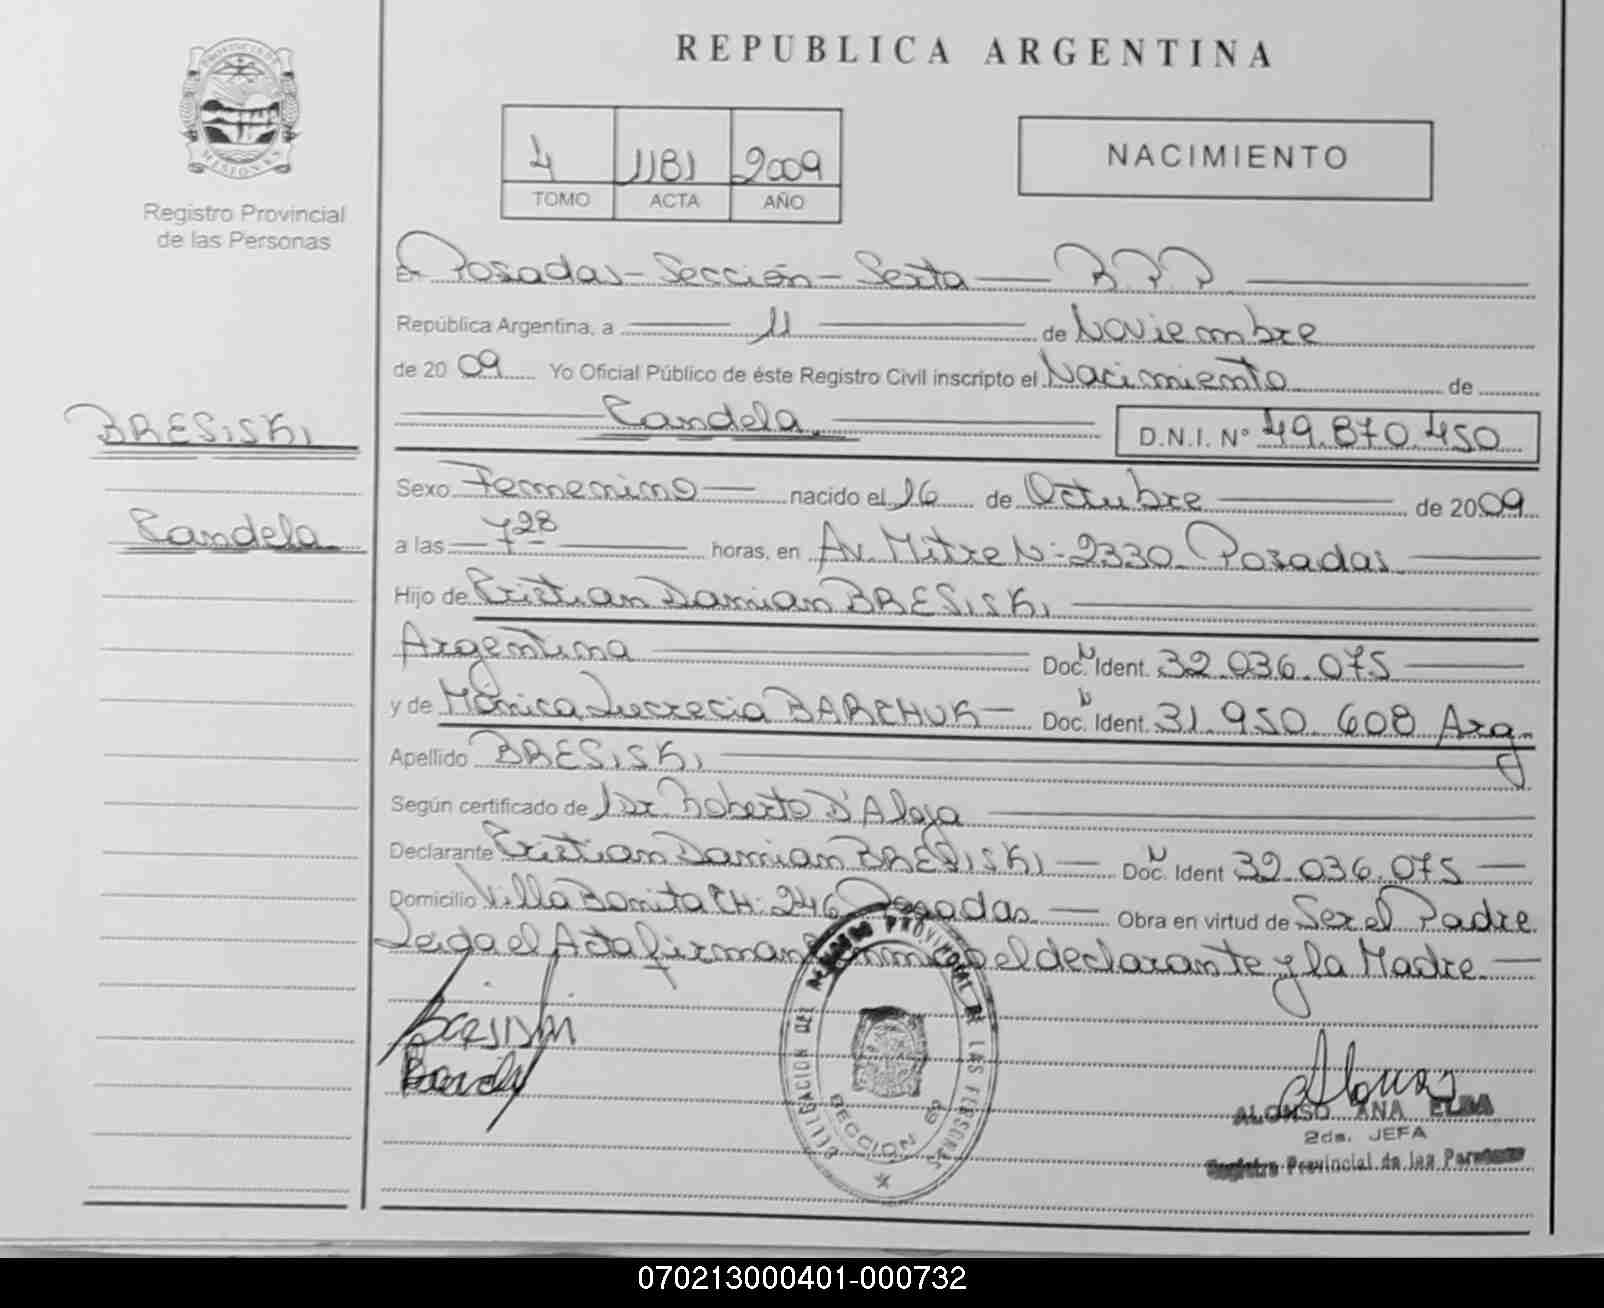 PROVINCIA DE
MISIONES
Registro Provincial
de las Personas
BRESISKI
Candela
REPUBLICA ARGENTINA
4 1181 2009
TOMO ACTA AÑO
NACIMIENTO
En Posadas - Sección - Sexta — R.P.P.
República Argentina, a 11 de Noviembre
de 2009 Yo Oficial Público de éste Registro Civil inscripto el Nacimiento de
Candela D.N.I. N° 49.870.450
Sexo Femenino nacido el 16 de Octubre de 2009
a las 7 28 horas, en Av. Mitre N: 2330 Posadas
Hijo de Cristian Damian BRESISKI
Argentina Doc. N Ident. 32.036.075
y de Mónica Lucrecia BARCHUK Doc. N Ident. 31.950.608 Arg.
Apellido BRESISKI
Según certificado de Dr Roberto D'Aloja
Declarante Cristian Damian BRESISKI Doc. N Ident 32.036.075
Domicilio Villa Bonita CH: 246 Posadas Obra en virtud de Ser el Padre
Leida el Acta firman conmigo el declarante y la Madre
DEL REGISTRO PROVINCIAL DE LAS PERSONAS
SECCION 6ª
ALONSO ANA ELBA
2da. JEFA
Registro Provincial de las Personas
070213000401-000732